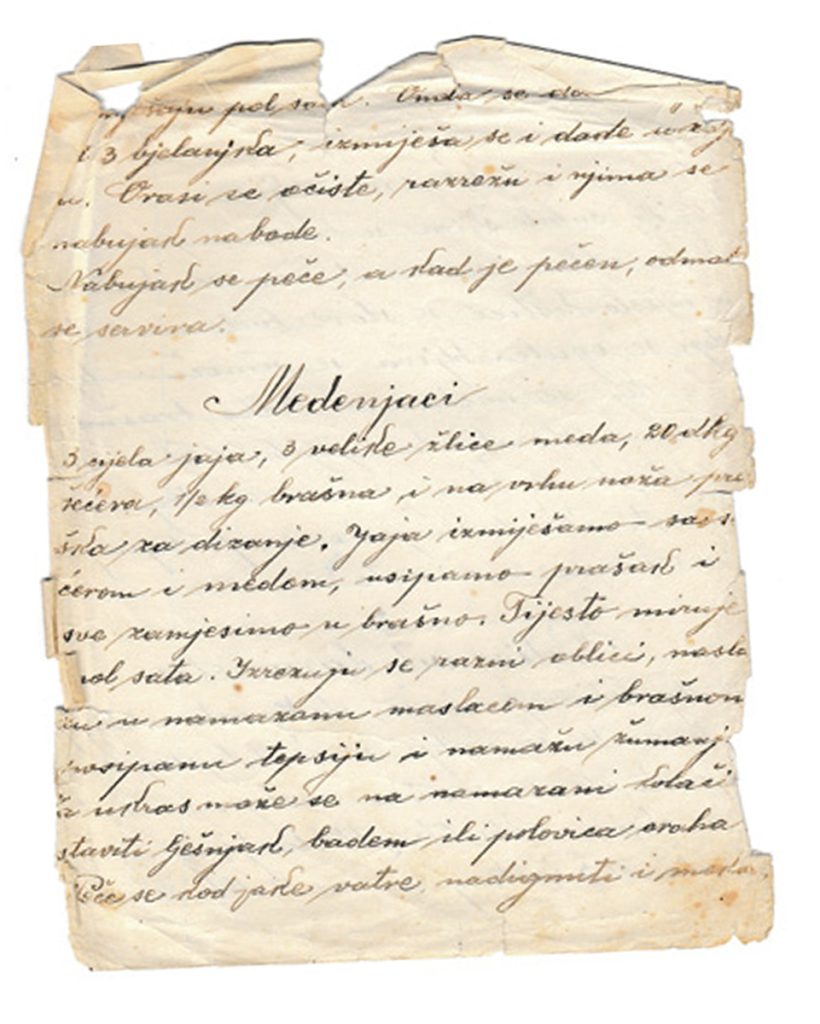 miješaju pol sata. Onda se do
i 3 bjelanjka, izmiješa se i dade u
u. Orasi se očiste, razrežu i njima se
nabujak nabode.
Nabujak se peče, a kad je pečen, odmah
se servira.
Medenjaci
3 cijela jaja, 3 velike žlice meda, 20 dkg
šećera, 1/2 kg brašna i na vrhu noža pra
ška za dizanje. Jaja izmiješamo sa še
ćerom i medom, usipamo prašak i
sve zamjesimo u brašno. Tijesto miruje
pol sata. Izrezuju se razni oblici, nasla
žu u namazanu maslacem i brašnom
posipanu tepsiju i namažu žumanj.
Za ukras može se na namazani kolači
staviti lješnjak, badem ili polovica oraha
Peče se kod jake vatre, nadignuti i